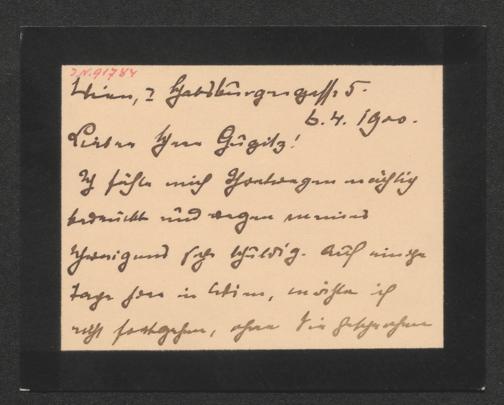 J.N. 91784
Wien, I Habsburgergasse 5.
6.4.1900.
Lieber Herr Gugitz!
Ich fühle mich
bedrückt und wegen meines
Schweigens sehr schuldig. Auf einige
Tage hier in Wien, möchte ich
nicht fortgehen, ohne Sie gesprochen